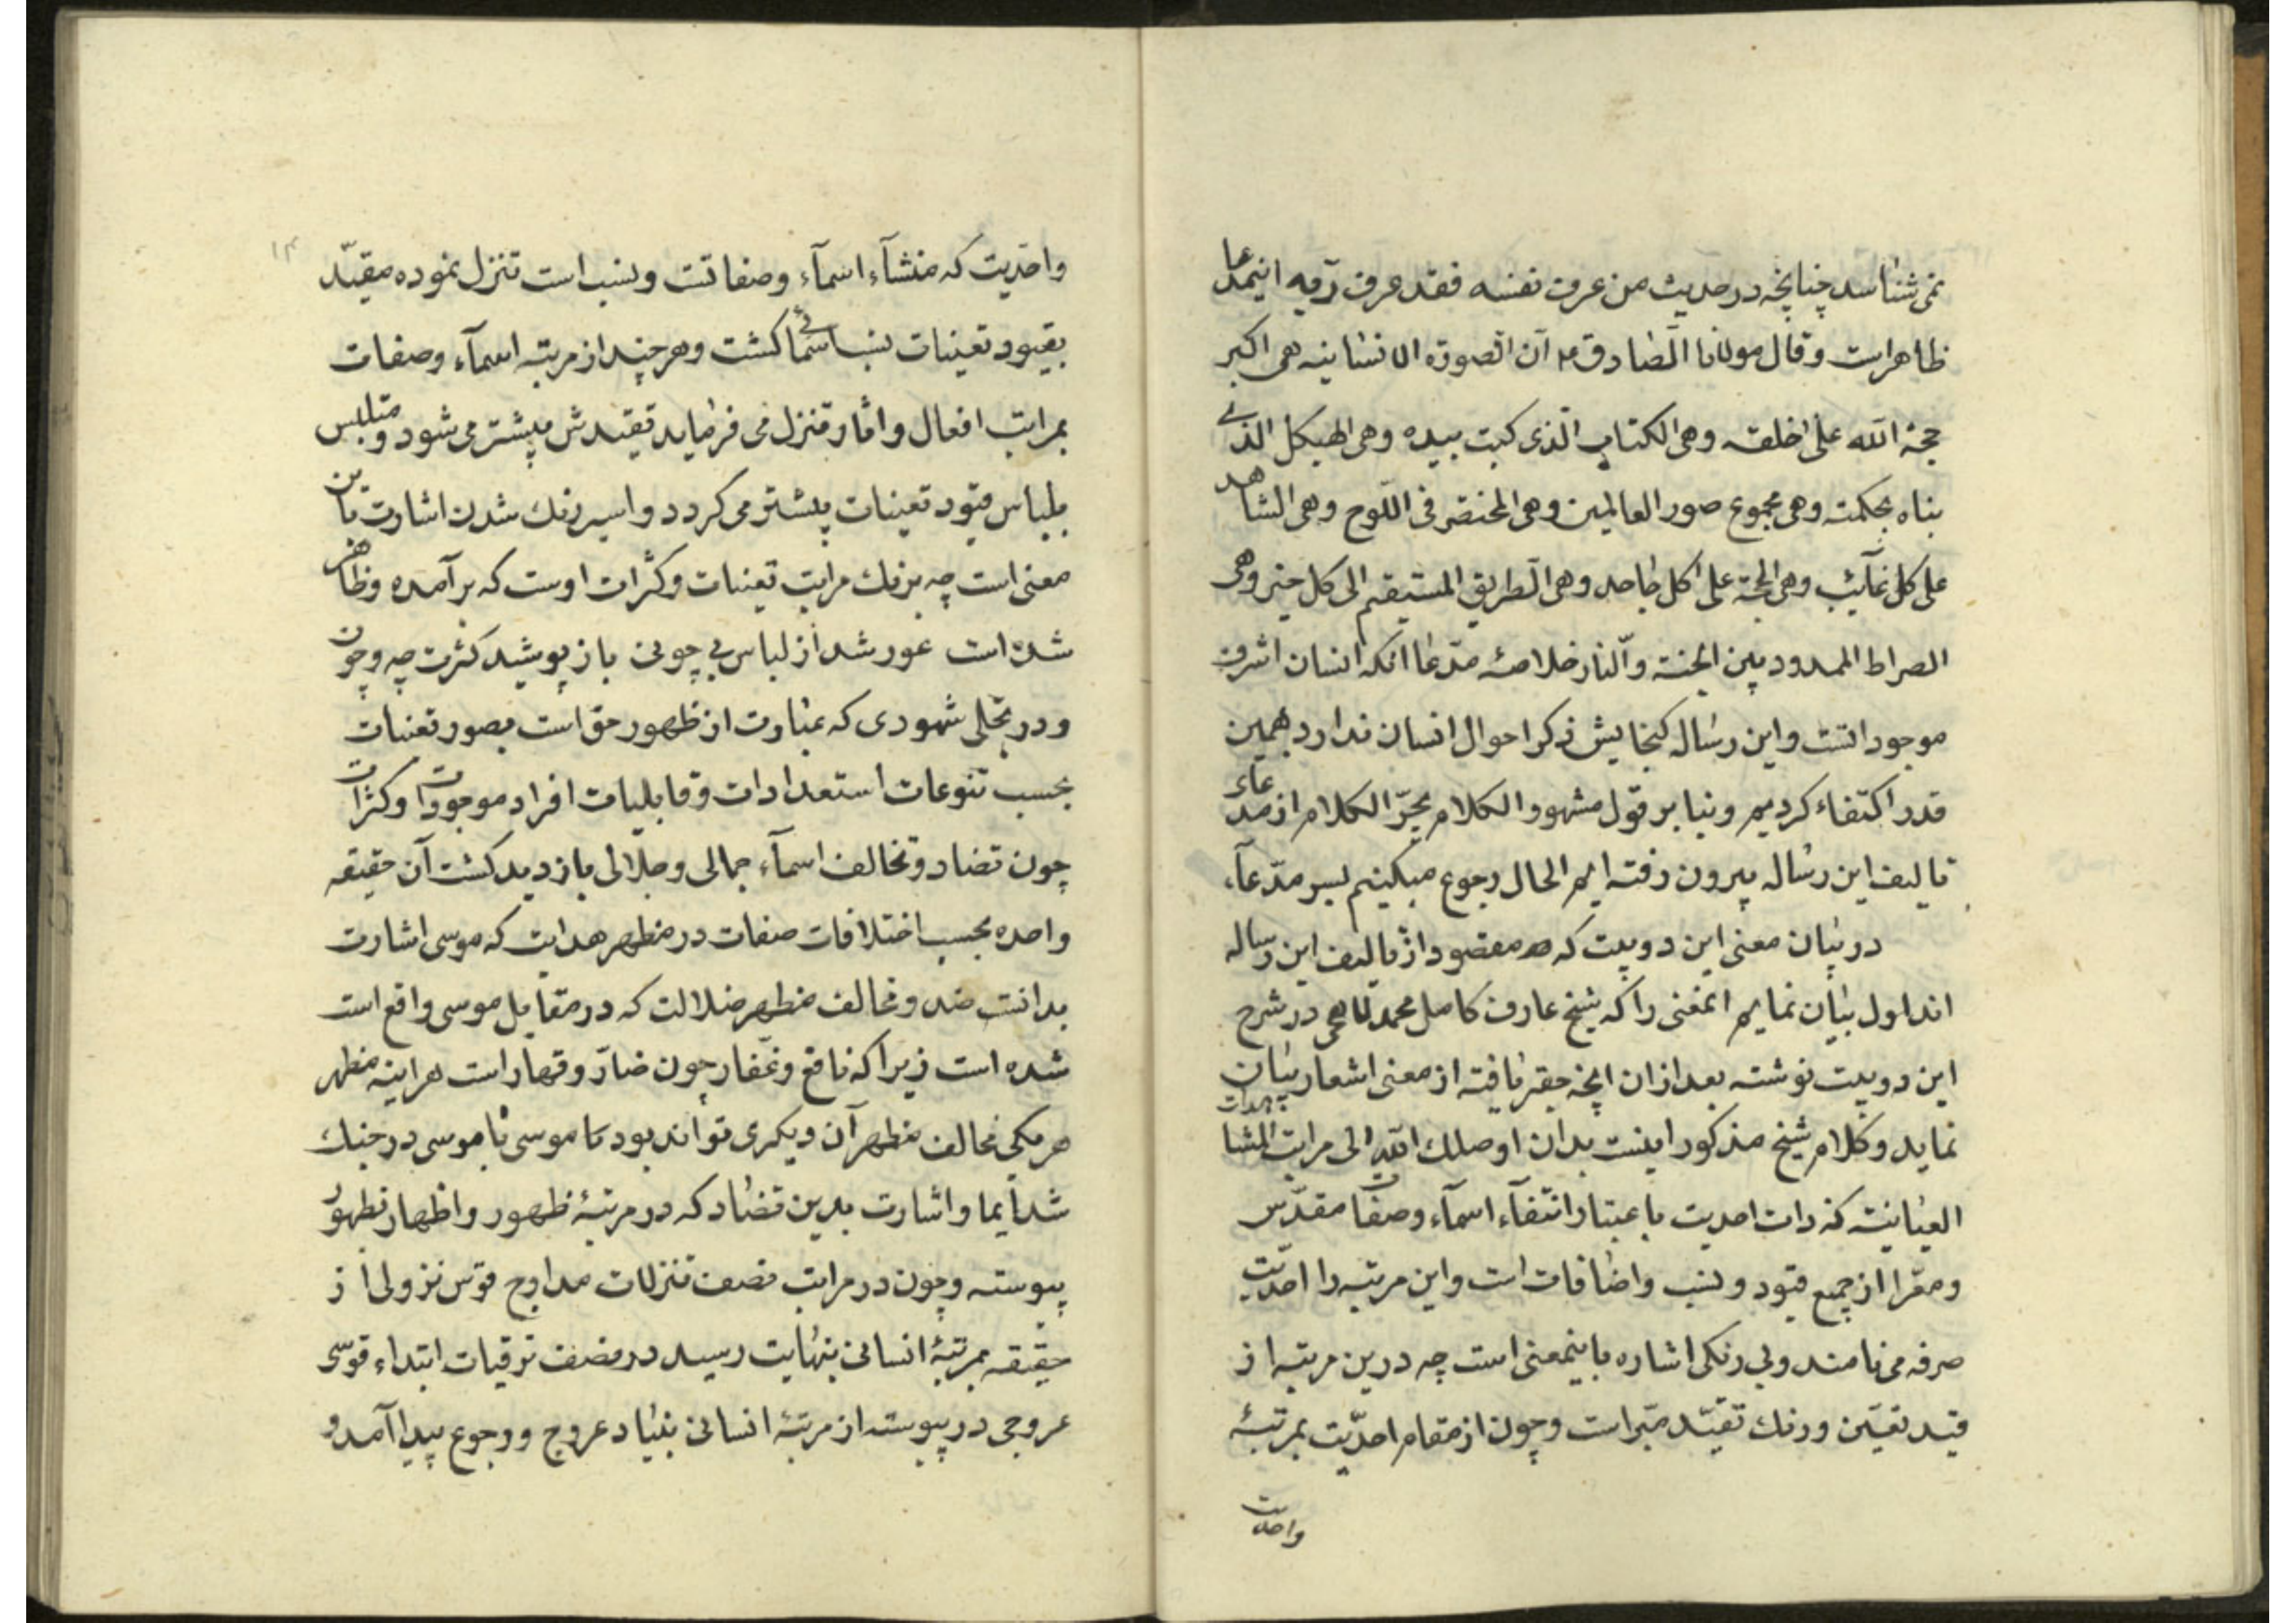 نمی شناسد چنانچه در حدیث من عرف نفسه فقد عرف ربه اینمدعا
ظاهر است و قال مولانا الصادق ع ان الصورة الانسانیه هی اکبر
حجة الله علی خلقه وهی الکتاب الذی کتب بیده وهی الهیکل الذی
بناه بحکمته وهی مجموع صور العالمین وهی المختصر فی اللوح وهی الشاهد
علی کل غائب وهی الحجة علی کل جاحد وهی الطریق المستقیم الی کل خیر وهی
الصراط الممدود بین الجنة والنار خلاصه مدعا انکه انسان اشرف
موجوداتست و این رساله کنجایش ذکر احوال انسان ندارد بهمین
قدر اکتفاء کردیم و بنا بر قول مشهور الکلام یجر الکلام از مدعاء
تالیف این رساله بیرون رفته ایم الحال رجوع میکینم بسر مدعآء
در بیان معنی این دو بیت که مقصود از تالیف این رساله
اند اول بیان نمایم انمعنی را که شیخ عارف کامل محمد لاهجی در شرح
این دو بیت نوشته بعد از ان انچه حقیر یافته از معنی اشعار بیان
نماید و کلام شیخ مذکور اینست بدان اوصلک الله الی مراتب المشاهدات
العیانیته که ذات احدیت باعتبار انتفآء اسمآء و صفات مقدس
و معرا از جمیع قیود و نسب و اضافات است و این مرتبه را احدیت
صرفه می نامند و بی رنکی اشاره باینمعنی است چه درین مرتبه از
قید تعین و رنک تقید مبراست و چون از مقام احدیت بمرتبهٔ
واحدیت
۱۳
واحدیت که منشآء اسمآء و صفاتت و نسب است تنزل نموده مقید
بقیود تعینات نسب اسمائی کشت و هر چند از مرتبه اسمآء و صفات
بمراتب افعال و اثار تنزل می فرماید تقیدش بیشتر می شود و متلبس
بلباس قیود تعینات بیشتر می کردد و اسیر رنک شدن اشارت باین
معنی است چه برنک مراتب تعینات و کثرات اوست که برآمده و ظاهر
شده است عور شد از لباس بی چونی باز پوشید کثرت چه و چون
و در تجلی شهودی که عبارت از ظهور حق است بصور تعینات
بحسب تنوعات استعدادات و قابلیات افراد موجودات و کثرات
چون تضاد و تخالف اسمآء جمالی و جلالی باز دید کشت آن حقیقه
واحده بحسب اختلافات صفات در مظهر هدایت که موسی اشارت
بدانت ضد و مخالف مظهر ضلالت که در مقابل موسی واقع است
شده است زیرا که نافع و غفار چون ضار و قهار است هراینه مظهر
هر یکی مخالف مظهر آن دیکری تواند بود تا موسی با موسی در جنک
شد ایما و اشارت بدین تضاد که در مرتبهٔ ظهور و اظهار بظهور
پیوسته و چون در مراتب نصف تنزلات مدارج قوس نزولی از
حقیقه بمرتبهٔ انسانی بنهایت رسید در نصف ترقیات ابتداء قوسی
عروجی در پیوسته از مرتبهٔ انسانی بنیاد عروج و رجوع پیدا آمد و